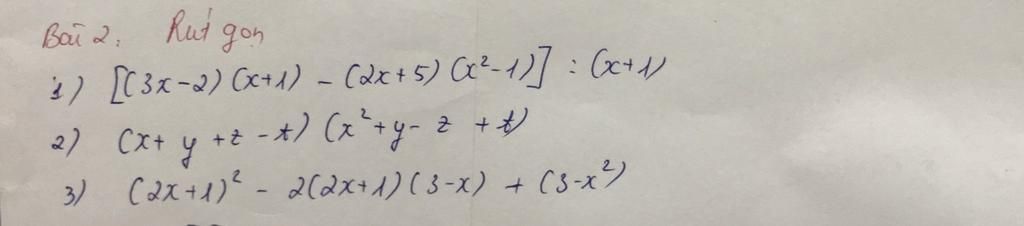 Bài 2: Rút gọn
1) [(3x-2)(x+1) - (2x+5)(x²-1)] : (x+1)
2) (x+ y +z -t)(x²+y- z +t)
3) (2x+1)² - 2(2x+1)(3-x) + (3-x²)